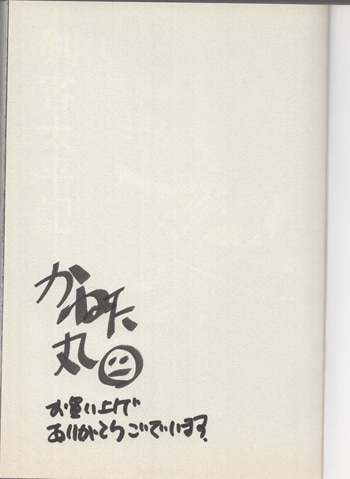 かねた
丸
お買い上げ
ありがとうございます。